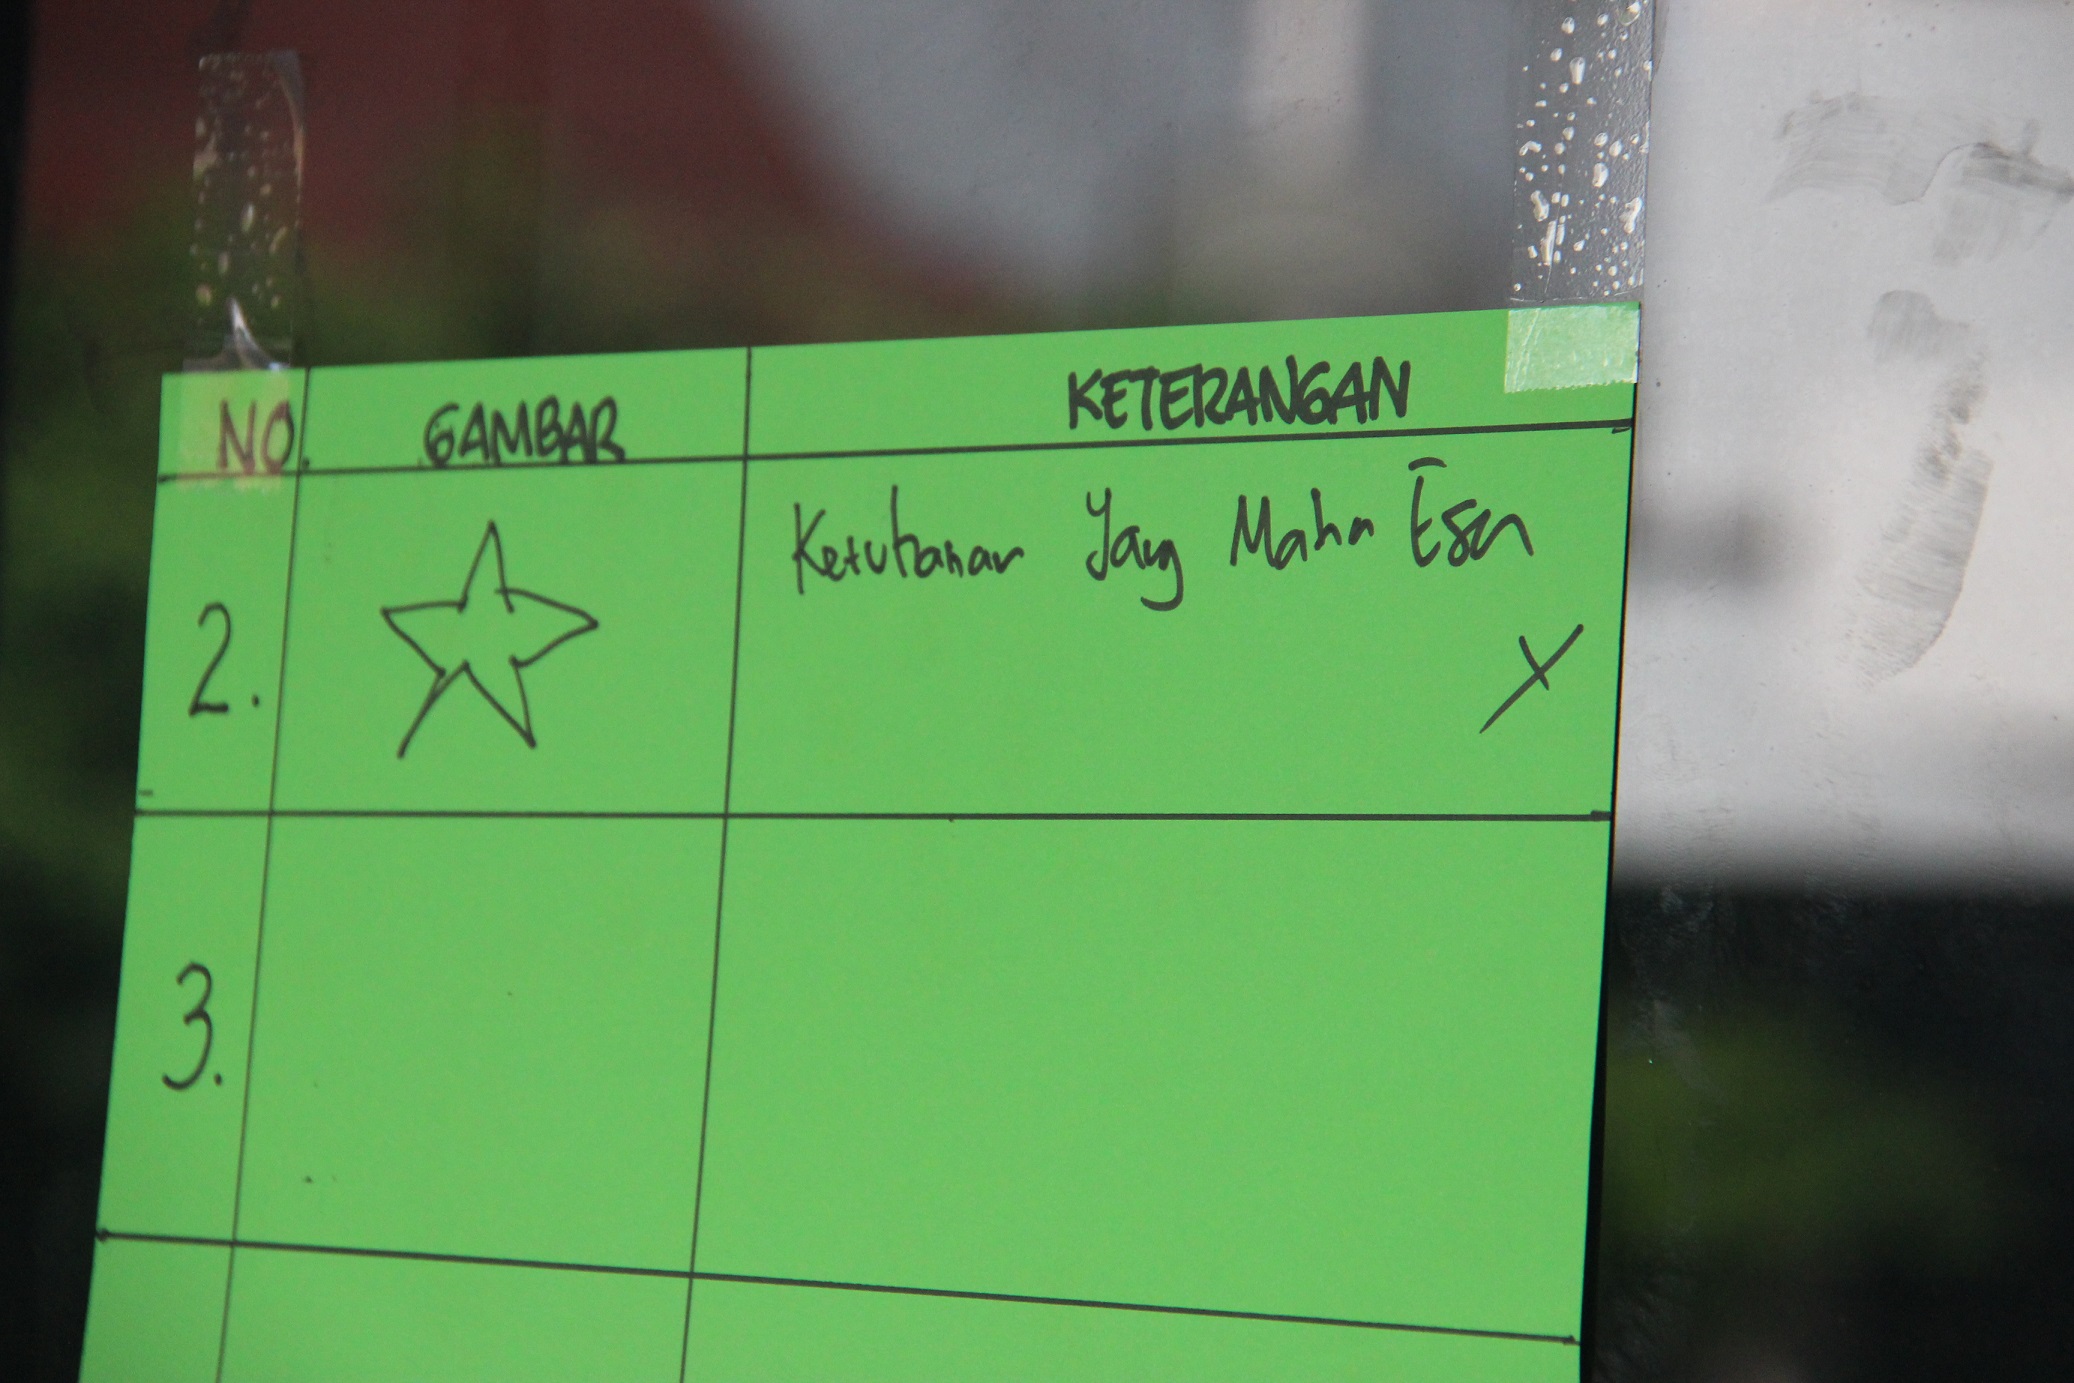 NO. GAMBAR KETERANGAN
2. Ketuhanan Yang Maha Esa
X
3.